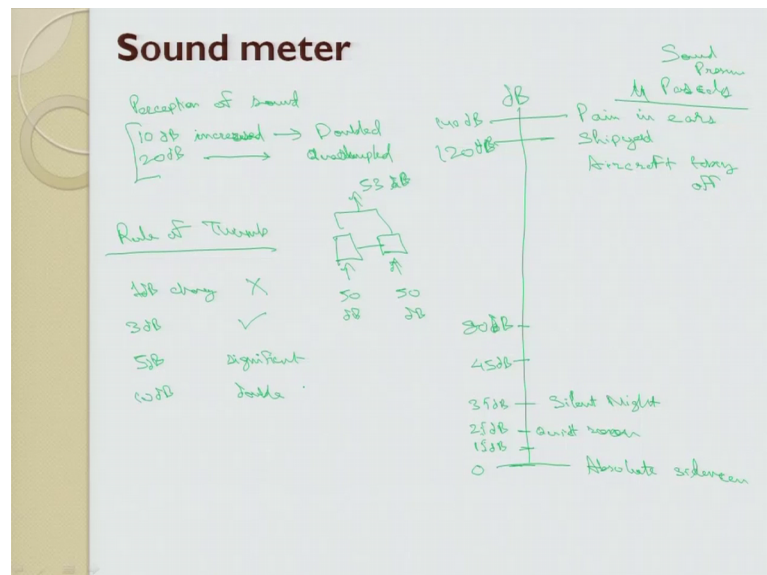 Sound meter
Perception of sound
10 dB increased → Doubled
20dB → Quadrupled
53 dB
50 dB
50 dB
Rule of Thumb
1dB change X
3dB ✓
5dB significant
10dB double
Sound
μ Pascals
dB
140 dB Pain in ears
120dB Shipyard
Aircraft
off
45dB
35dB Silent Night
25dB Quiet room
15dB
0 Absolute